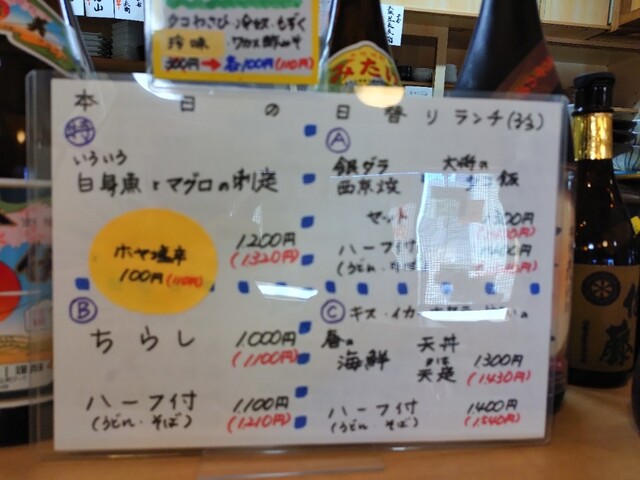 タコわさび・冷奴・もずく
珍味・ワカメ酢みそ
300円→各100円(110円)
みたい
本日の日替りランチ(3/3)
特
いろいろ
白身魚とマグロの刺定
1.200円
(1.320円)
ホヤ塩辛
100円(110円)
A
銀ダラ 大将の
西京焼 飯
セット
ハーフ付
(うどん・そば)
B
ちらし
1.000円
(1.100円)
ハーフ付
1.100円
(うどん・そば)
(1.210円)
C キス・イカ・
春の 天丼
海鮮 または
天定
1300円
(1.430円)
ハーフ付
1.400円
(うどん そば)
(1.540円)